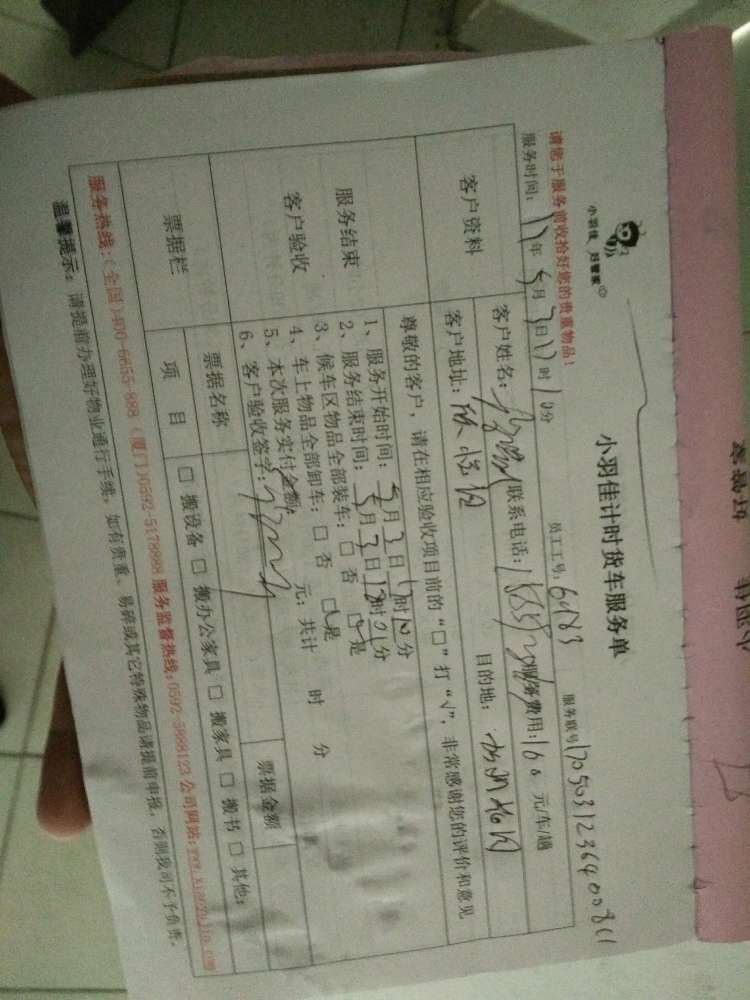 小羽佳 好管家
小羽佳计时货车服务单
请您于服务前收拾好您的贵重物品!
员工工号: 60183
服务联号
服务时间: 17年 5月 3日 17时 10分
客户资料
客户姓名:
联系电话:
服务费用: 160 元/车/趟
客户地址:
目的地:
尊敬的客户,请在相应验收项目前的“□”打“√”,非常感谢您的评价和意见
服务结束
客户验收
1、服务开始时间: 5月 3日 17时 10分
2、服务结束时间: 5月 3日 18时 01分
3、候车区物品全部装车: □ 否 □ 是
4、车上物品全部卸车: □ 否 □ 是
5、本次服务实付金额: 元; 共计 时 分
6、客户验收签字:
票据栏
票据名称
票据金额
项 目
□ 搬设备 □ 搬办公家具 □ 搬家具 □ 搬书 □ 其他:
服务热线:(全国)400-6655-888 (厦门)0592-5178888 服务监督热线:0592-5888123 公司网站:www.xiaoyujia.com
温馨提示: 请提前办理好物业通行手续,如有贵重、易碎或其它特殊物品请提前申报,否则我司不予负责。